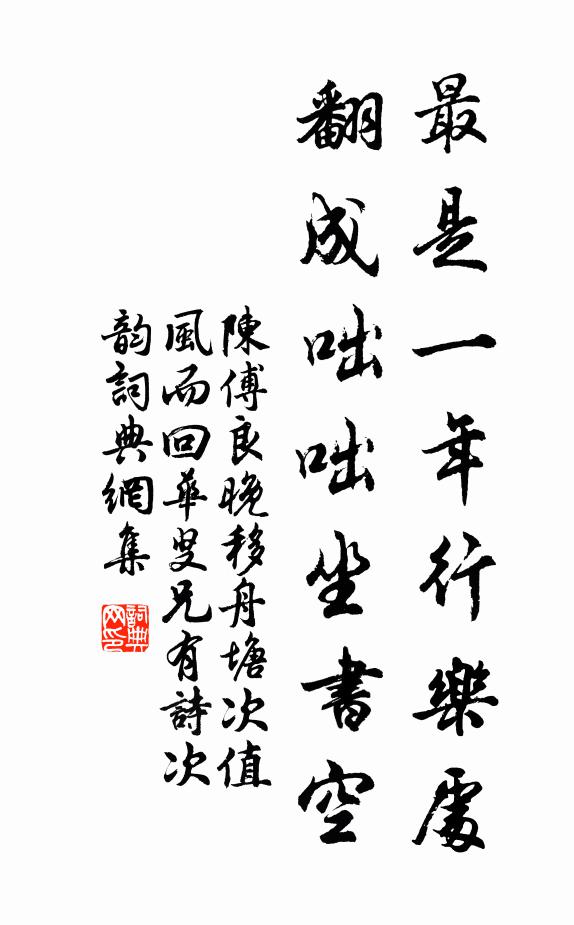 最是一年行樂處
翻成咄咄坐書空
陳傅良晚移舟塘次值
風而回華叟兄有詩次
韵詞典網集
詞典
网印